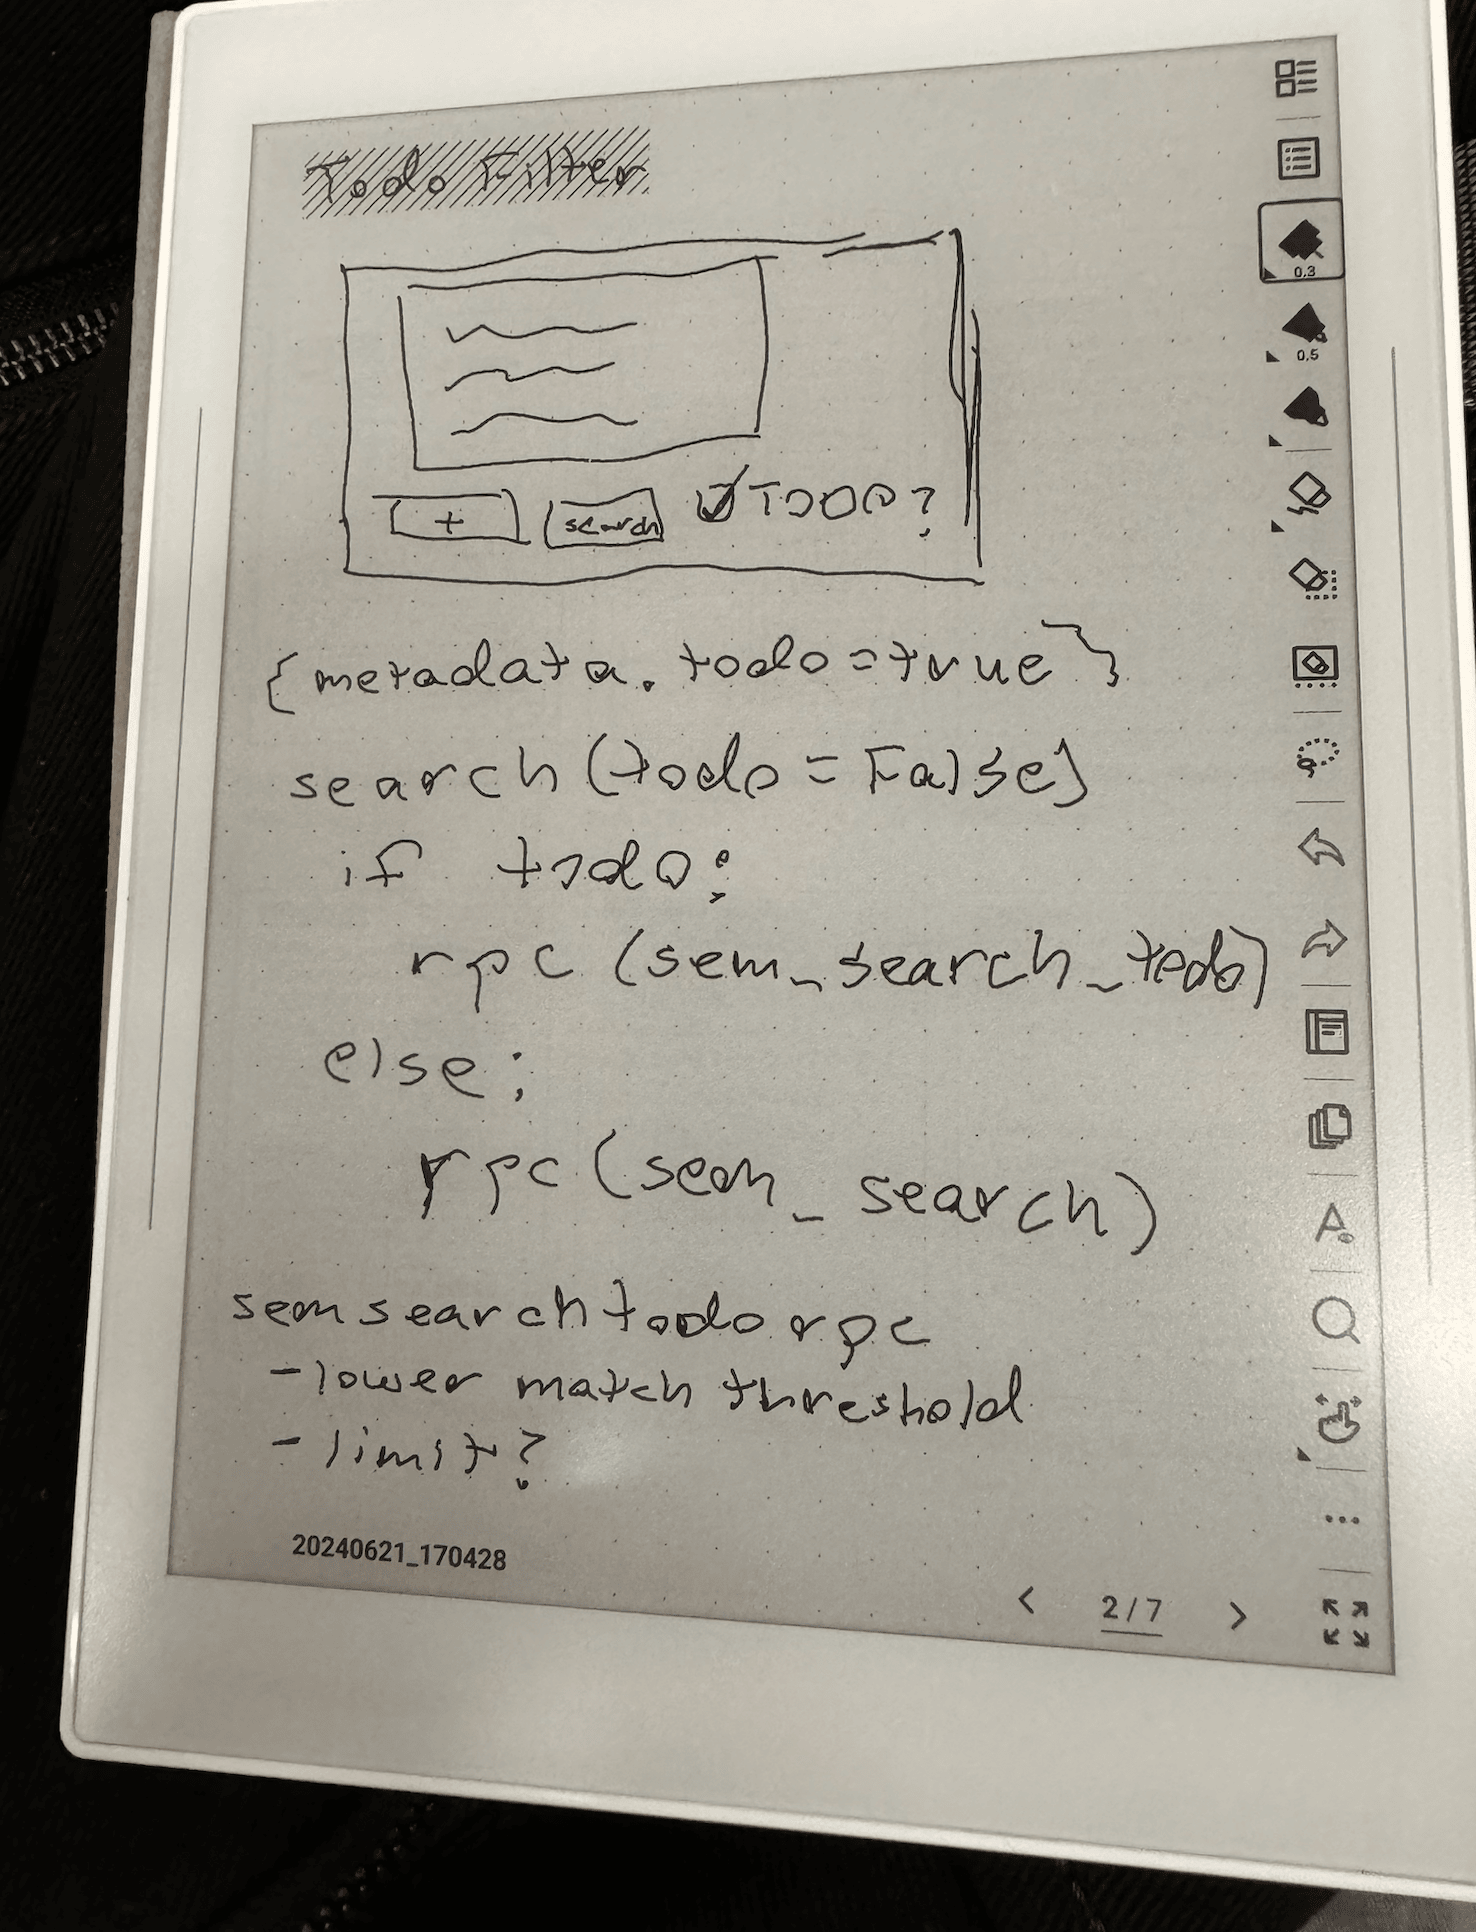 Todo Filter
+ search TODO?
{metadata.todo=true}
search(todo=False)
if todo:
rpc (sem_search_todo)
else:
rpc (sem_search)
semsearchtodo rpc
- lower match threshold
- limit?
20240621_170428
< 2/7 >
0.3
0.5